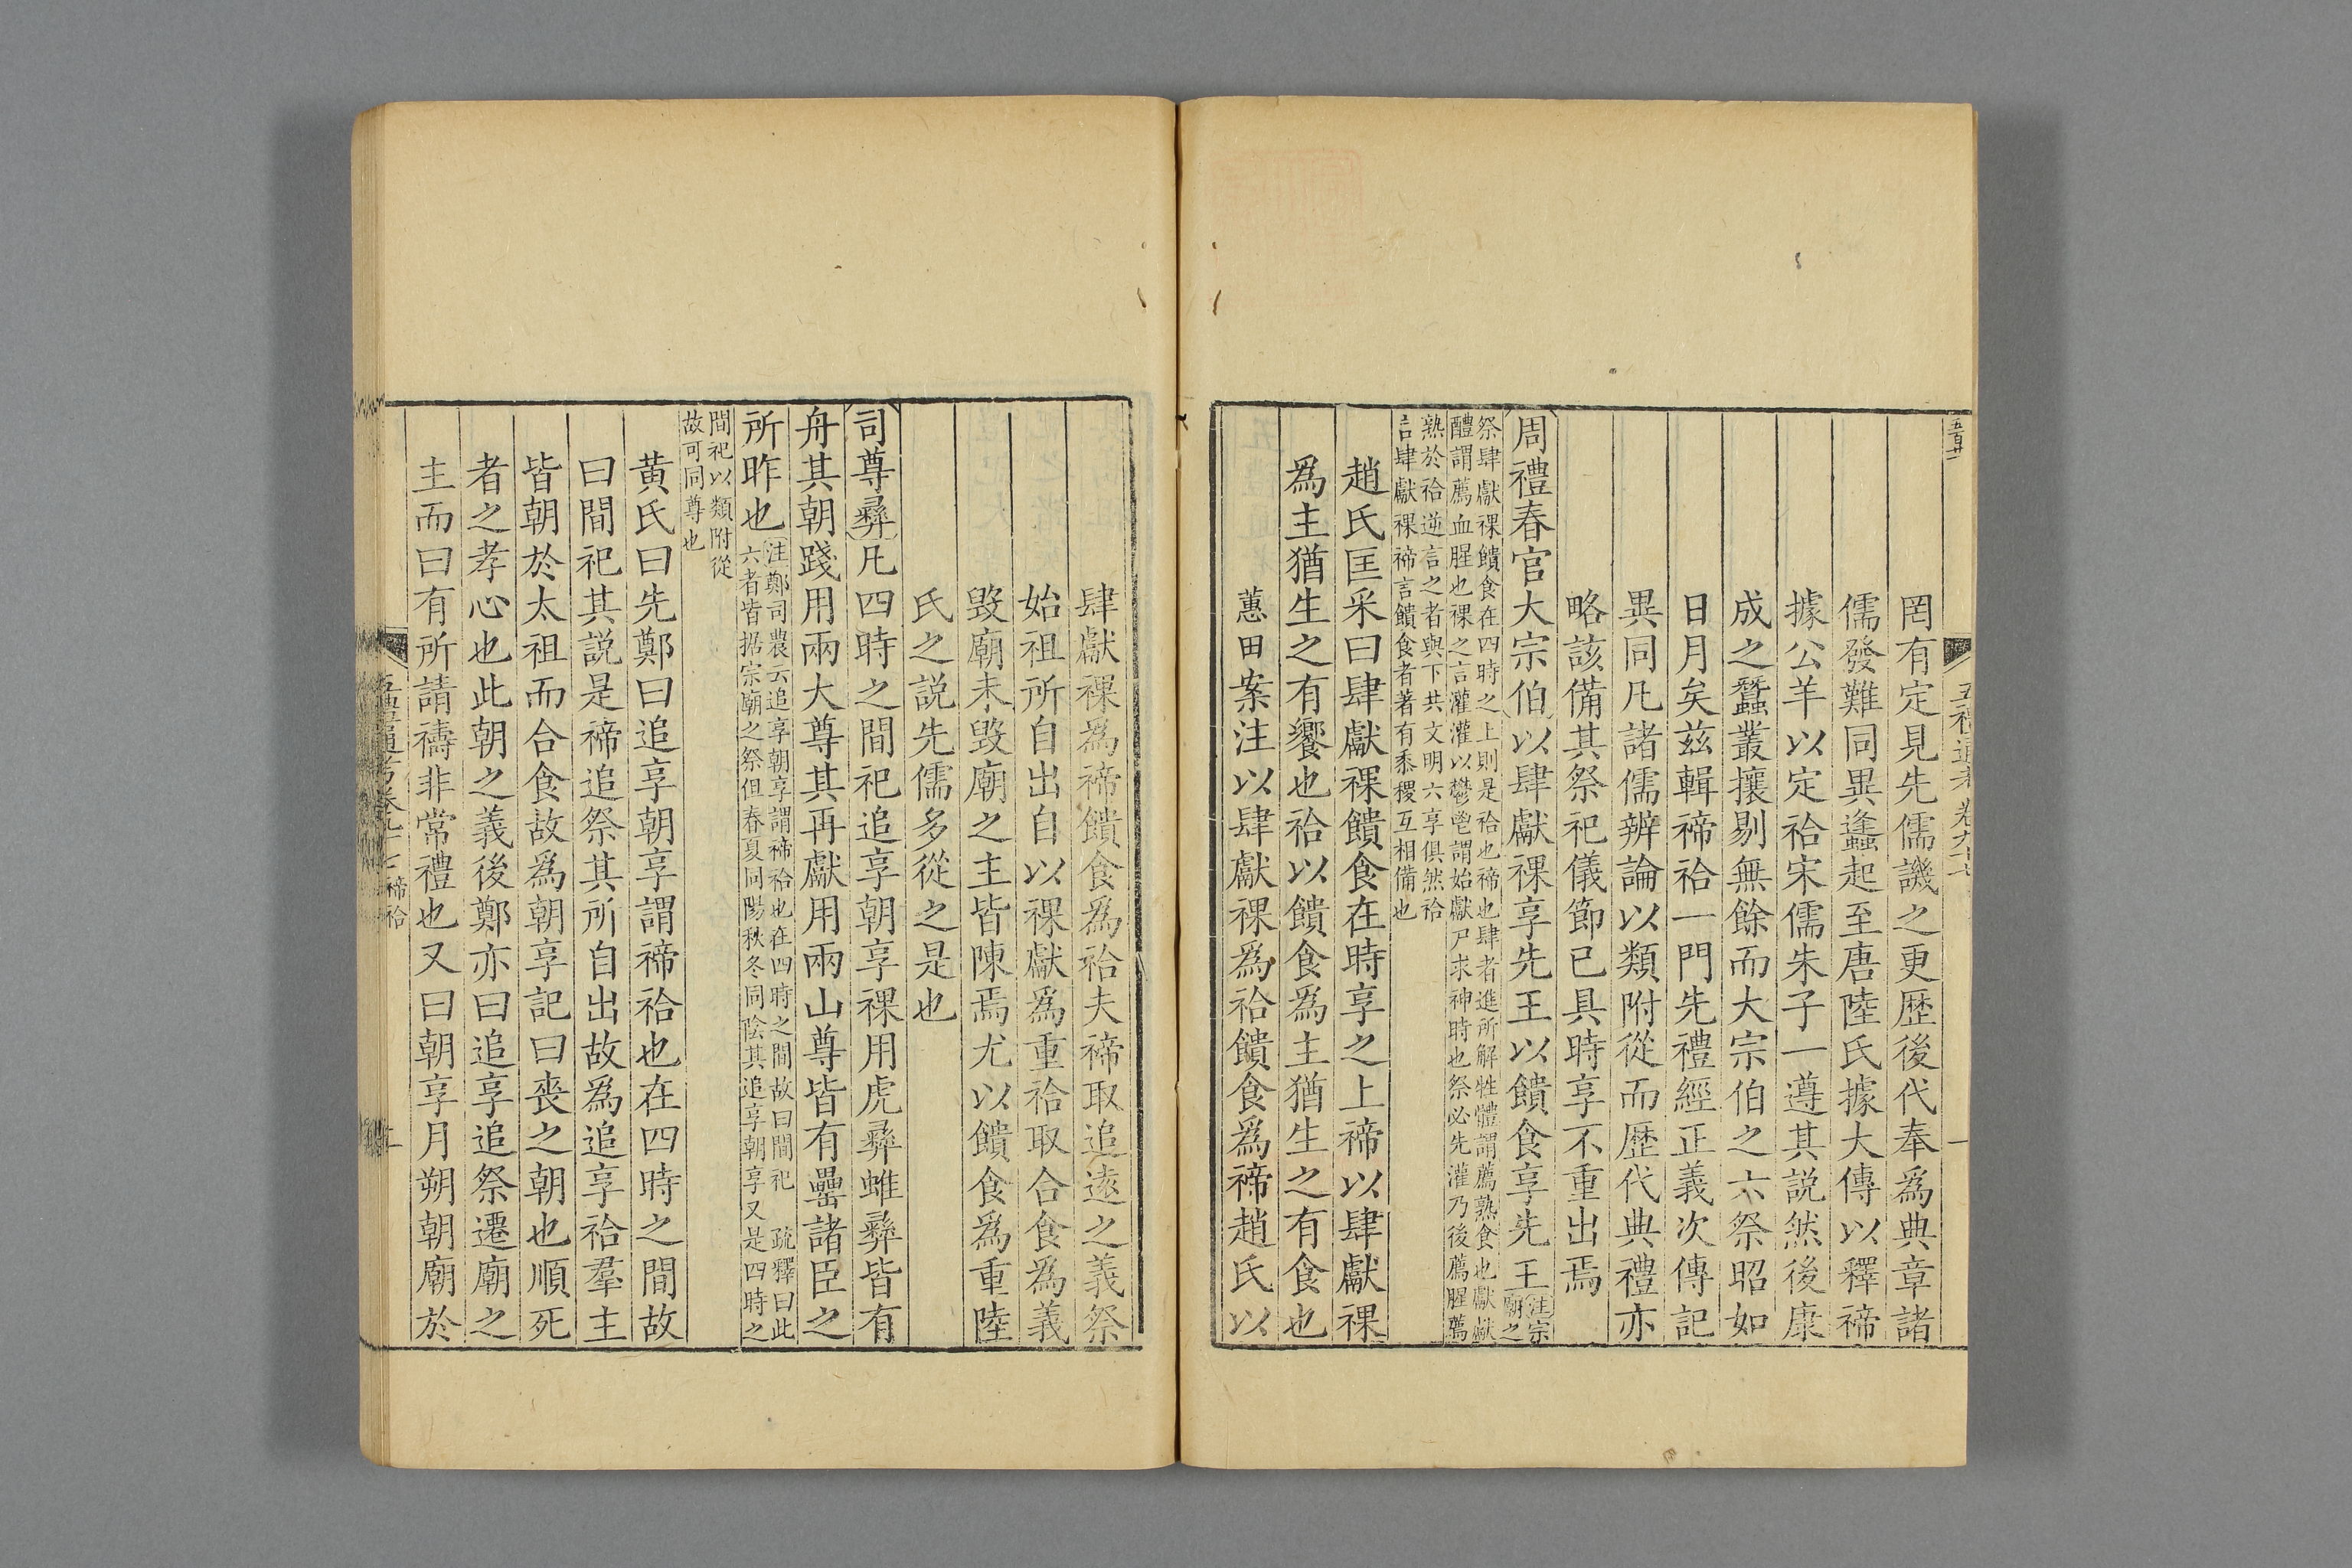 罔有定見先儒譏之更歷後代奉爲典章諸
儒發難同異蠭起至唐陸氏據大傳以釋禘
據公羊以定祫宋儒朱子一遵其説然後康
成之蠶叢攘剔無餘而大宗伯之六祭昭如
日月矣茲輯禘祫一門先禮經正義次傳記
異同凡諸儒辨論以類附從而歷代典禮亦
略該備其祭祀儀節已具時享不重出焉
周禮春官大宗伯以肆獻祼享先王以饋食享先王注宗
廟之
祭肆獻祼饋食在四時之上則是祫也禘也肆者進所解牲體謂薦熟食也獻獻
醴謂薦血腥也祼之言灌灌以鬱鬯謂始獻尸求神時也祭必先灌乃後薦腥薦
熟於祫逆言之者與下共文明六享俱然祫
言肆獻祼禘言饋食者著有黍稷互相備也
趙氏匡采曰肆獻祼饋食在時享之上禘以肆獻祼
爲主猶生之有饗也祫以饋食爲主猶生之有食也
蕙田案注以肆獻祼爲祫饋食爲禘趙氏以
五禮通考卷九十七
一
肆獻祼爲禘饋食爲祫夫禘取追遠之義祭
始祖所自出自以祼獻爲重祫取合食爲義
毀廟未毀廟之主皆陳焉尤以饋食爲重陸
氏之説先儒多從之是也
司尊彝凡四時之間祀追享朝享祼用虎彝蜼彝皆有
舟其朝踐用兩大尊其再獻用兩山尊皆有罍諸臣之
所昨也注鄭司農云追享朝享謂禘祫也在四時之間故曰間祀 疏釋曰此
六者皆據宗廟之祭但春夏同陽秋冬同陰其追享朝享又是四時之
間祀以類附從
故可同尊也
黃氏曰先鄭曰追享朝享謂禘祫也在四時之間故
曰間祀其説是禘追祭其所自出故爲追享祫羣主
皆朝於太祖而合食故爲朝享記曰喪之朝也順死
者之孝心也此朝之義後鄭亦曰追享追祭遷廟之
主而曰有所請禱非常禮也又曰朝享月朔朝廟於
五禮通考卷九十七 禘祫